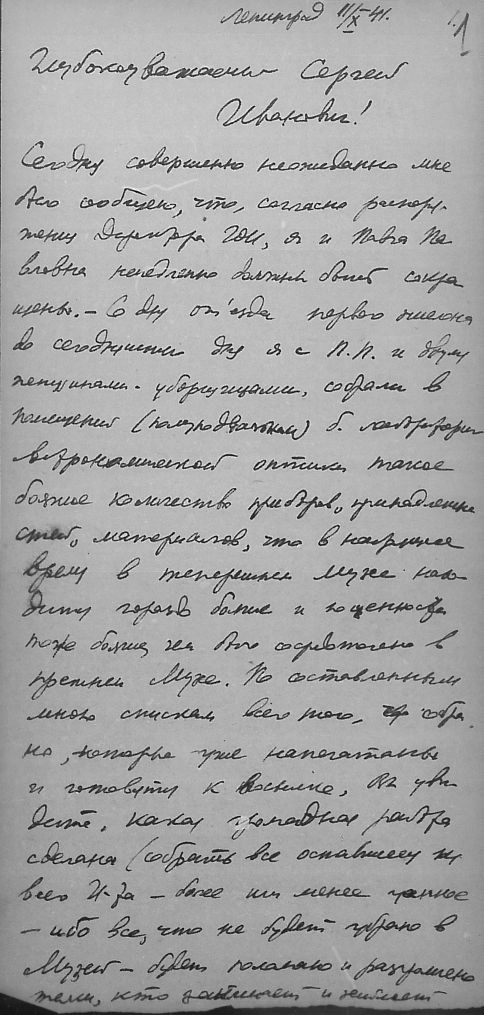 Ленинград 11/X 41.
1
Глубокоуважаемый Сергей
Иванович!
Сегодня совершенно неожиданно мне
было сообщено, что, согласно распоря-
жению Директора ГОИ, я и Павла Па
вловна немедленно должны быть сокра
щены. – Со дня отъезда первого эшелона
до сегодняшнего дня я с П.П. и двумя
женщинами - уборщицами, собрали в
помещении (полуподвальном) б. лаборатории
астрономической оптики такое
большое количество приборов, принадлежно
стей, материалов, что в настоящее
время в теперешнем Музее нахо
дится гораздо больше и по ценности
тоже больше, чем было сосредоточено в
прежнем Музее. По составленным
мною спискам всего того, что собра
но, которые уже напечатаны
и готовятся к посылке, Вы уви
дите, какая громадная работа
сделана (собрать все оставшееся из
всего И-та – более или менее ценное
– ибо все, что не будет убрано в
Музей – будет поломано и разграблено
теми, кто занимает и займет